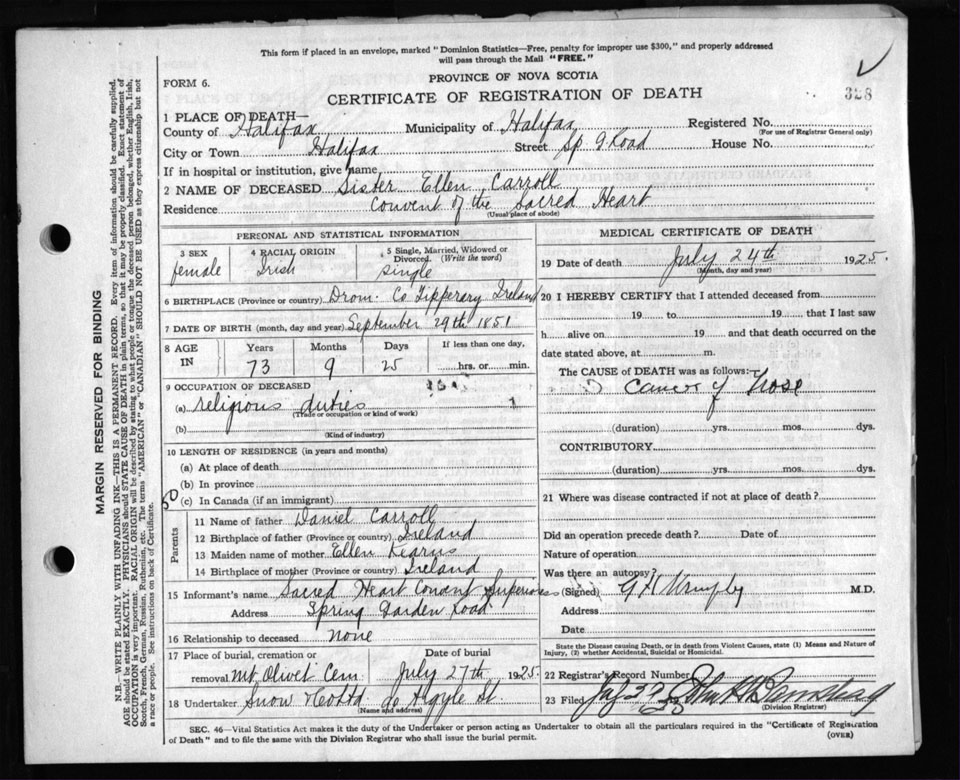 This form if placed in an envelope, marked "Dominion Statistics—Free, penalty for improper use $300," and properly addressed
will pass through the Mail "FREE."
FORM 6.
PROVINCE OF NOVA SCOTIA
CERTIFICATE OF REGISTRATION OF DEATH
328
1 PLACE OF DEATH—
County of Halifax Municipality of Halifax Registered No.
(For use of Registrar General only)
City or Town Halifax Street Sp. G Road House No.
If in hospital or institution, give name
2 NAME OF DECEASED Sister Ellen Carroll
Residence Convent of the Sacred Heart
(Usual place of abode)
PERSONAL AND STATISTICAL INFORMATION
3 SEX female
4 RACIAL ORIGIN Irish
5 Single, Married, Widowed or Divorced. (Write the word) single
6 BIRTHPLACE (Province or country) Drom. Co Tipperary Ireland
7 DATE OF BIRTH (month, day and year) September 29th 1851
8 AGE IN Years Months Days If less than one day,
73 9 25 hrs. or min.
9 OCCUPATION OF DECEASED
(a) religious duties
(Trade or occupation or kind of work)
(b)
(Kind of industry)
10 LENGTH OF RESIDENCE (in years and months)
(a) At place of death
(b) In province
50 (c) In Canada (if an immigrant)
Parents
11 Name of father Daniel Carroll
12 Birthplace of father (Province or country) Ireland
13 Maiden name of mother Ellen Kearns
14 Birthplace of mother (Province or country) Ireland
15 Informant's name Sacred Heart Convent Superioress
Address Spring Garden Road
16 Relationship to deceased none
17 Place of burial, cremation or removal Mt Olivet Cem. Date of burial July 27th 1925
18 Undertaker Snow & Co Ltd. 90 Argyle St.
(Name and address)
MEDICAL CERTIFICATE OF DEATH
19 Date of death July 24th 1925.
(Month, day and year)
20 I HEREBY CERTIFY that I attended deceased from
19 to 19 , that I last saw
h alive on 19 and that death occurred on the
date stated above, at m.
The CAUSE of DEATH was as follows:—
Cancer of Nose
(duration) yrs. mos. dys.
CONTRIBUTORY
(duration) yrs. mos. dys.
21 Where was disease contracted if not at place of death?
Did an operation precede death? Date of
Nature of operation
Was there an autopsy?
(Signed) G H Murphy M.D.
Address
Date
State the Disease causing Death, or in death from Violent Causes, state (1) Means and Nature of
Injury, (2) whether Accidental, Suicidal or Homicidal.
22 Registrar's Record Number
23 Filed
(Division Registrar)
SEC. 46—Vital Statistics Act makes it the duty of the Undertaker or person acting as Undertaker to obtain all the particulars required in the "Certificate of Registration
of Death" and to file the same with the Division Registrar who shall issue the burial permit.
(OVER)
MARGIN RESERVED FOR BINDING
N.B.—WRITE PLAINLY WITH UNFADING INK—THIS IS A PERMANENT RECORD. Every item of information should be carefully supplied.
AGE should be stated EXACTLY. PHYSICIANS should STATE CAUSE OF DEATH in plain terms, so that it may be properly classified. Exact statement of
OCCUPATION is very important. RACIAL ORIGIN will be described by stating to what people or tongue the deceased person belonged, whether English, Irish,
Scotch, French, German, Russian, Ruthenian, etc. The terms "AMERICAN" or "CANADIAN" SHOULD NOT BE USED as they express citizenship but not
a race or people. See instructions on back of Certificate.